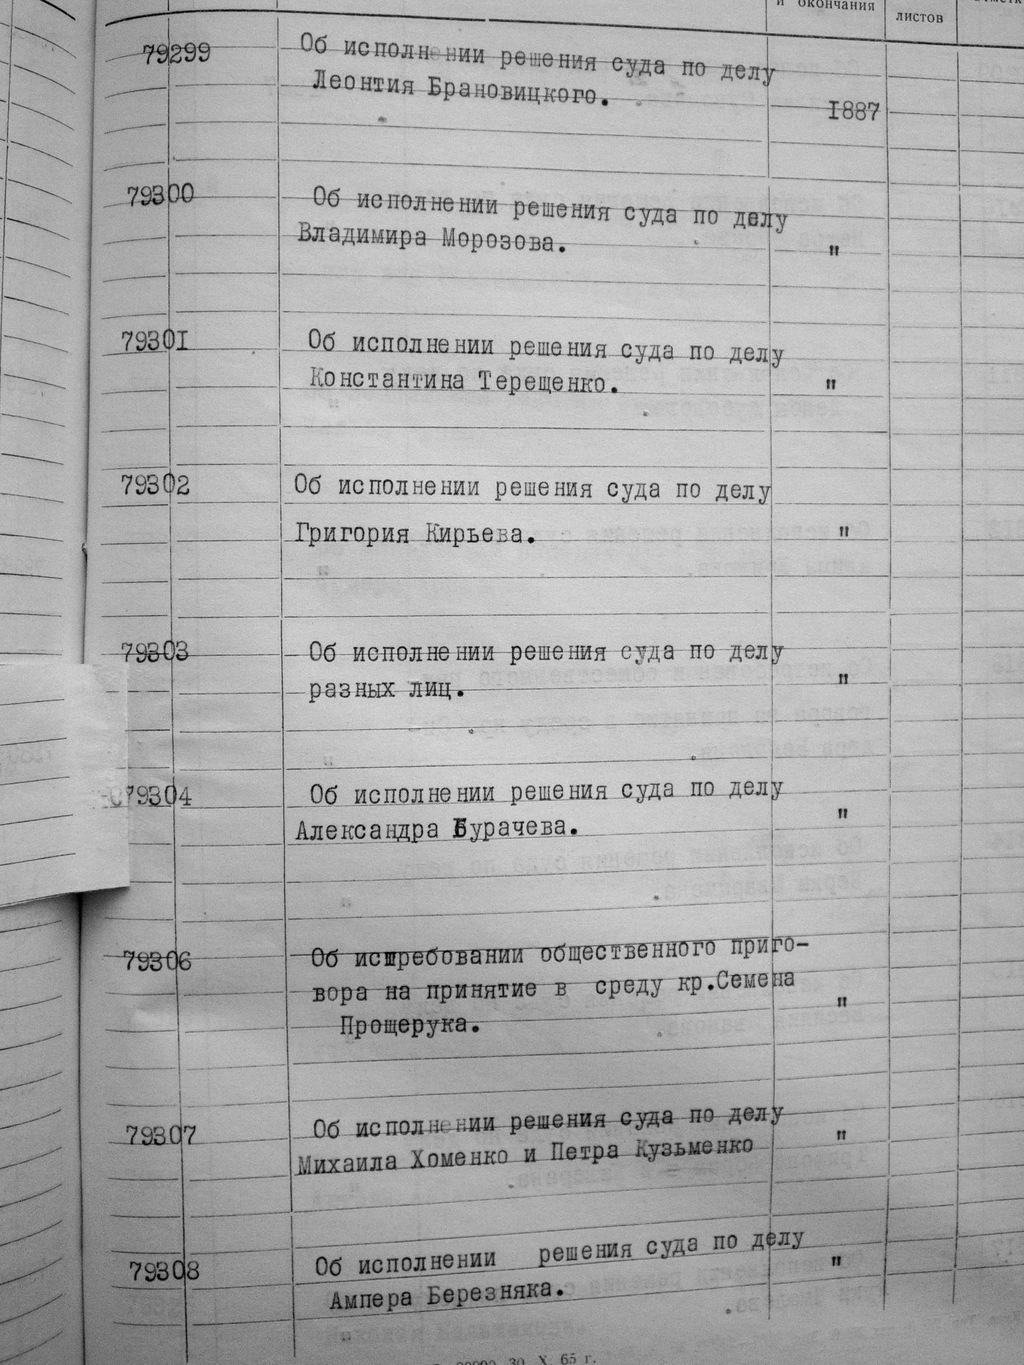 и окончания
листов
79299 Об исполнении решения суда по делу
Леонтия Брановицкого.
1887
79300 Об исполнении решения суда по делу
Владимира Морозова. "
79301 Об исполнении решения суда по делу
Константина Терещенко. "
79302 Об исполнении решения суда по делу
Григория Кирьева. "
79303 Об исполнении решения суда по делу
разных лиц. "
79304 Об исполнении решения суда по делу
Александра Бурачева. "
79306 Об истребовании общественного приго-
вора на принятие в среду кр.Семена
Прощерука. "
79307 Об исполнении решения суда по делу
Михаила Хоменко и Петра Кузьменко "
79308 Об исполнении решения суда по делу "
Ампера Березняка.
30. X. 65 г.